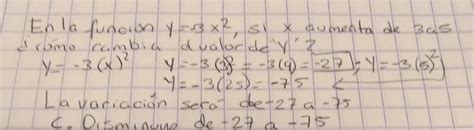 En la función y=-3x², si x aumenta de 3 a 5
¿cómo cambia el valor de "y"?
y=-3(x)² y=-3(3)²=-3(9)=-27 ; y=-3(5)²
y=-3(25)=-75
La variación será de -27 a -75
C. Disminuye de -27 a -75